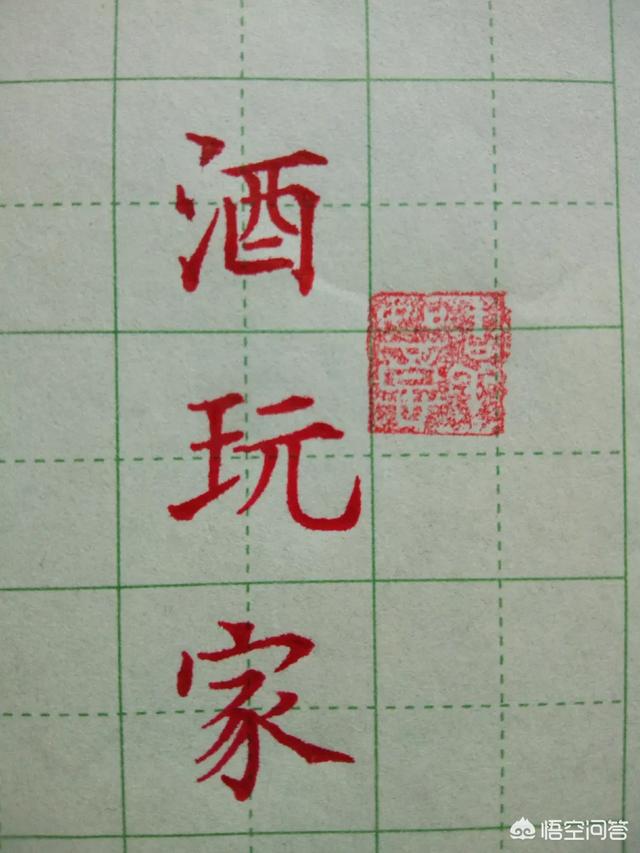 酒玩家
悟空问答